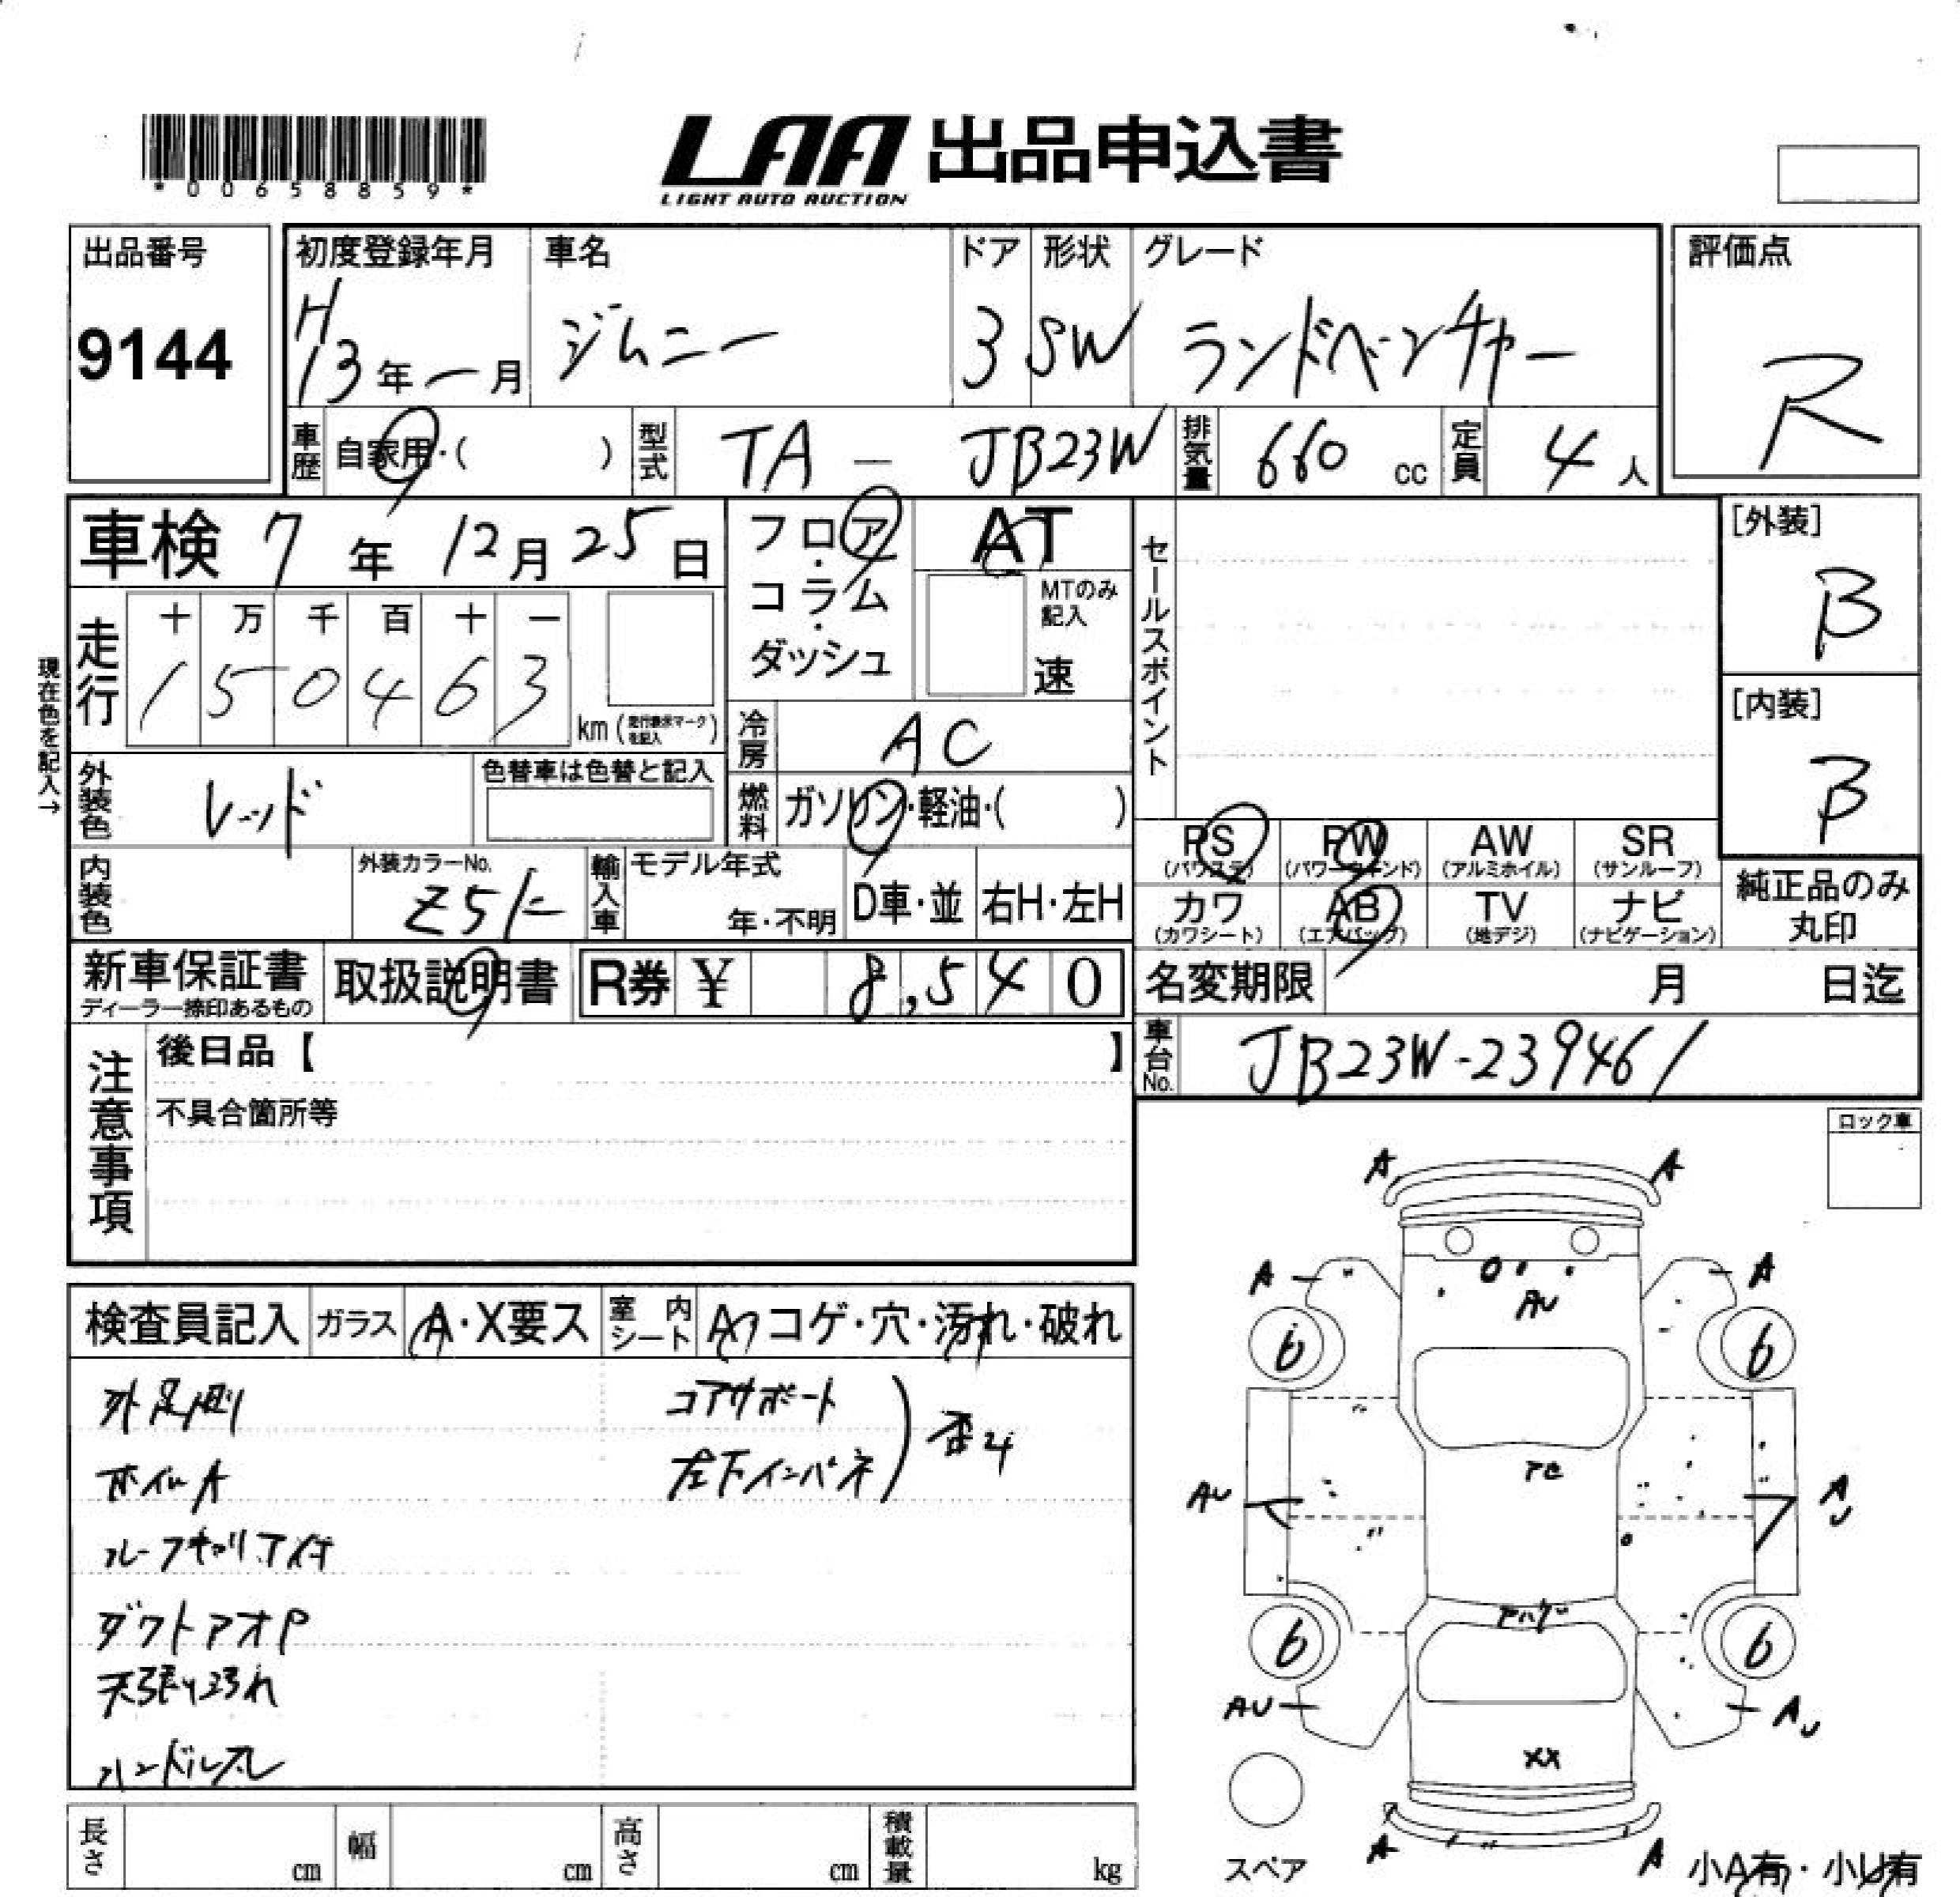 *00658859*
LAA 出品申込書
LIGHT AUTO AUCTION
出品番号
9144
初度登録年月
H13年ー月
車名
ジムニー
ドア
3
形状
SW
グレード
ランドベンチャー
評価点
R
車歴
自家用・( )
型式
TA - JB23W
排気量
660 cc
定員
4 人
車検 7年 12月 25日
フロア・コラム・ダッシュ
AT
MTのみ記入
速
セールスポイント
[外装]
B
[内装]
B
現在色を記入→
走行
十 万 千 百 十 一
1 5 0 4 6 3
km (走行表示マークを記入)
冷房
AC
外装色
レッド
色替車は色替と記入
燃料
ガソリン・軽油・( )
PS
(パワステ)
PW
(パワーウインド)
AW
(アルミホイル)
SR
(サンルーフ)
カワ
(カワシート)
AB
(エアバッグ)
TV
(地デジ)
ナビ
(ナビゲーション)
純正品のみ
丸印
内装色
外装カラーNo.
Z5
輸入車
モデル年式
年・不明
D車・並
右H・左H
新車保証書
ディーラー捺印あるもの
取扱説明書
R券 ¥ 8,540
名変期限 月 日迄
車台No.
JB23W-239461
注意事項
後日品【 】
不具合箇所等
ロック車
検査員記入
ガラス
A・X要ス
室内シート
A・コゲ・穴・汚れ・破れ
ホイルA
ルーフキャリア付
ダクトアオP
天張り汚れ
ハンドルスレ
コアサポート
左下インパネ
A A
A A
AU
6 6
AU
AU
6 6
AU
AU
XX
A A
スペア
小A有・小U有
長さ cm
幅 cm
高さ cm
積載量 kg